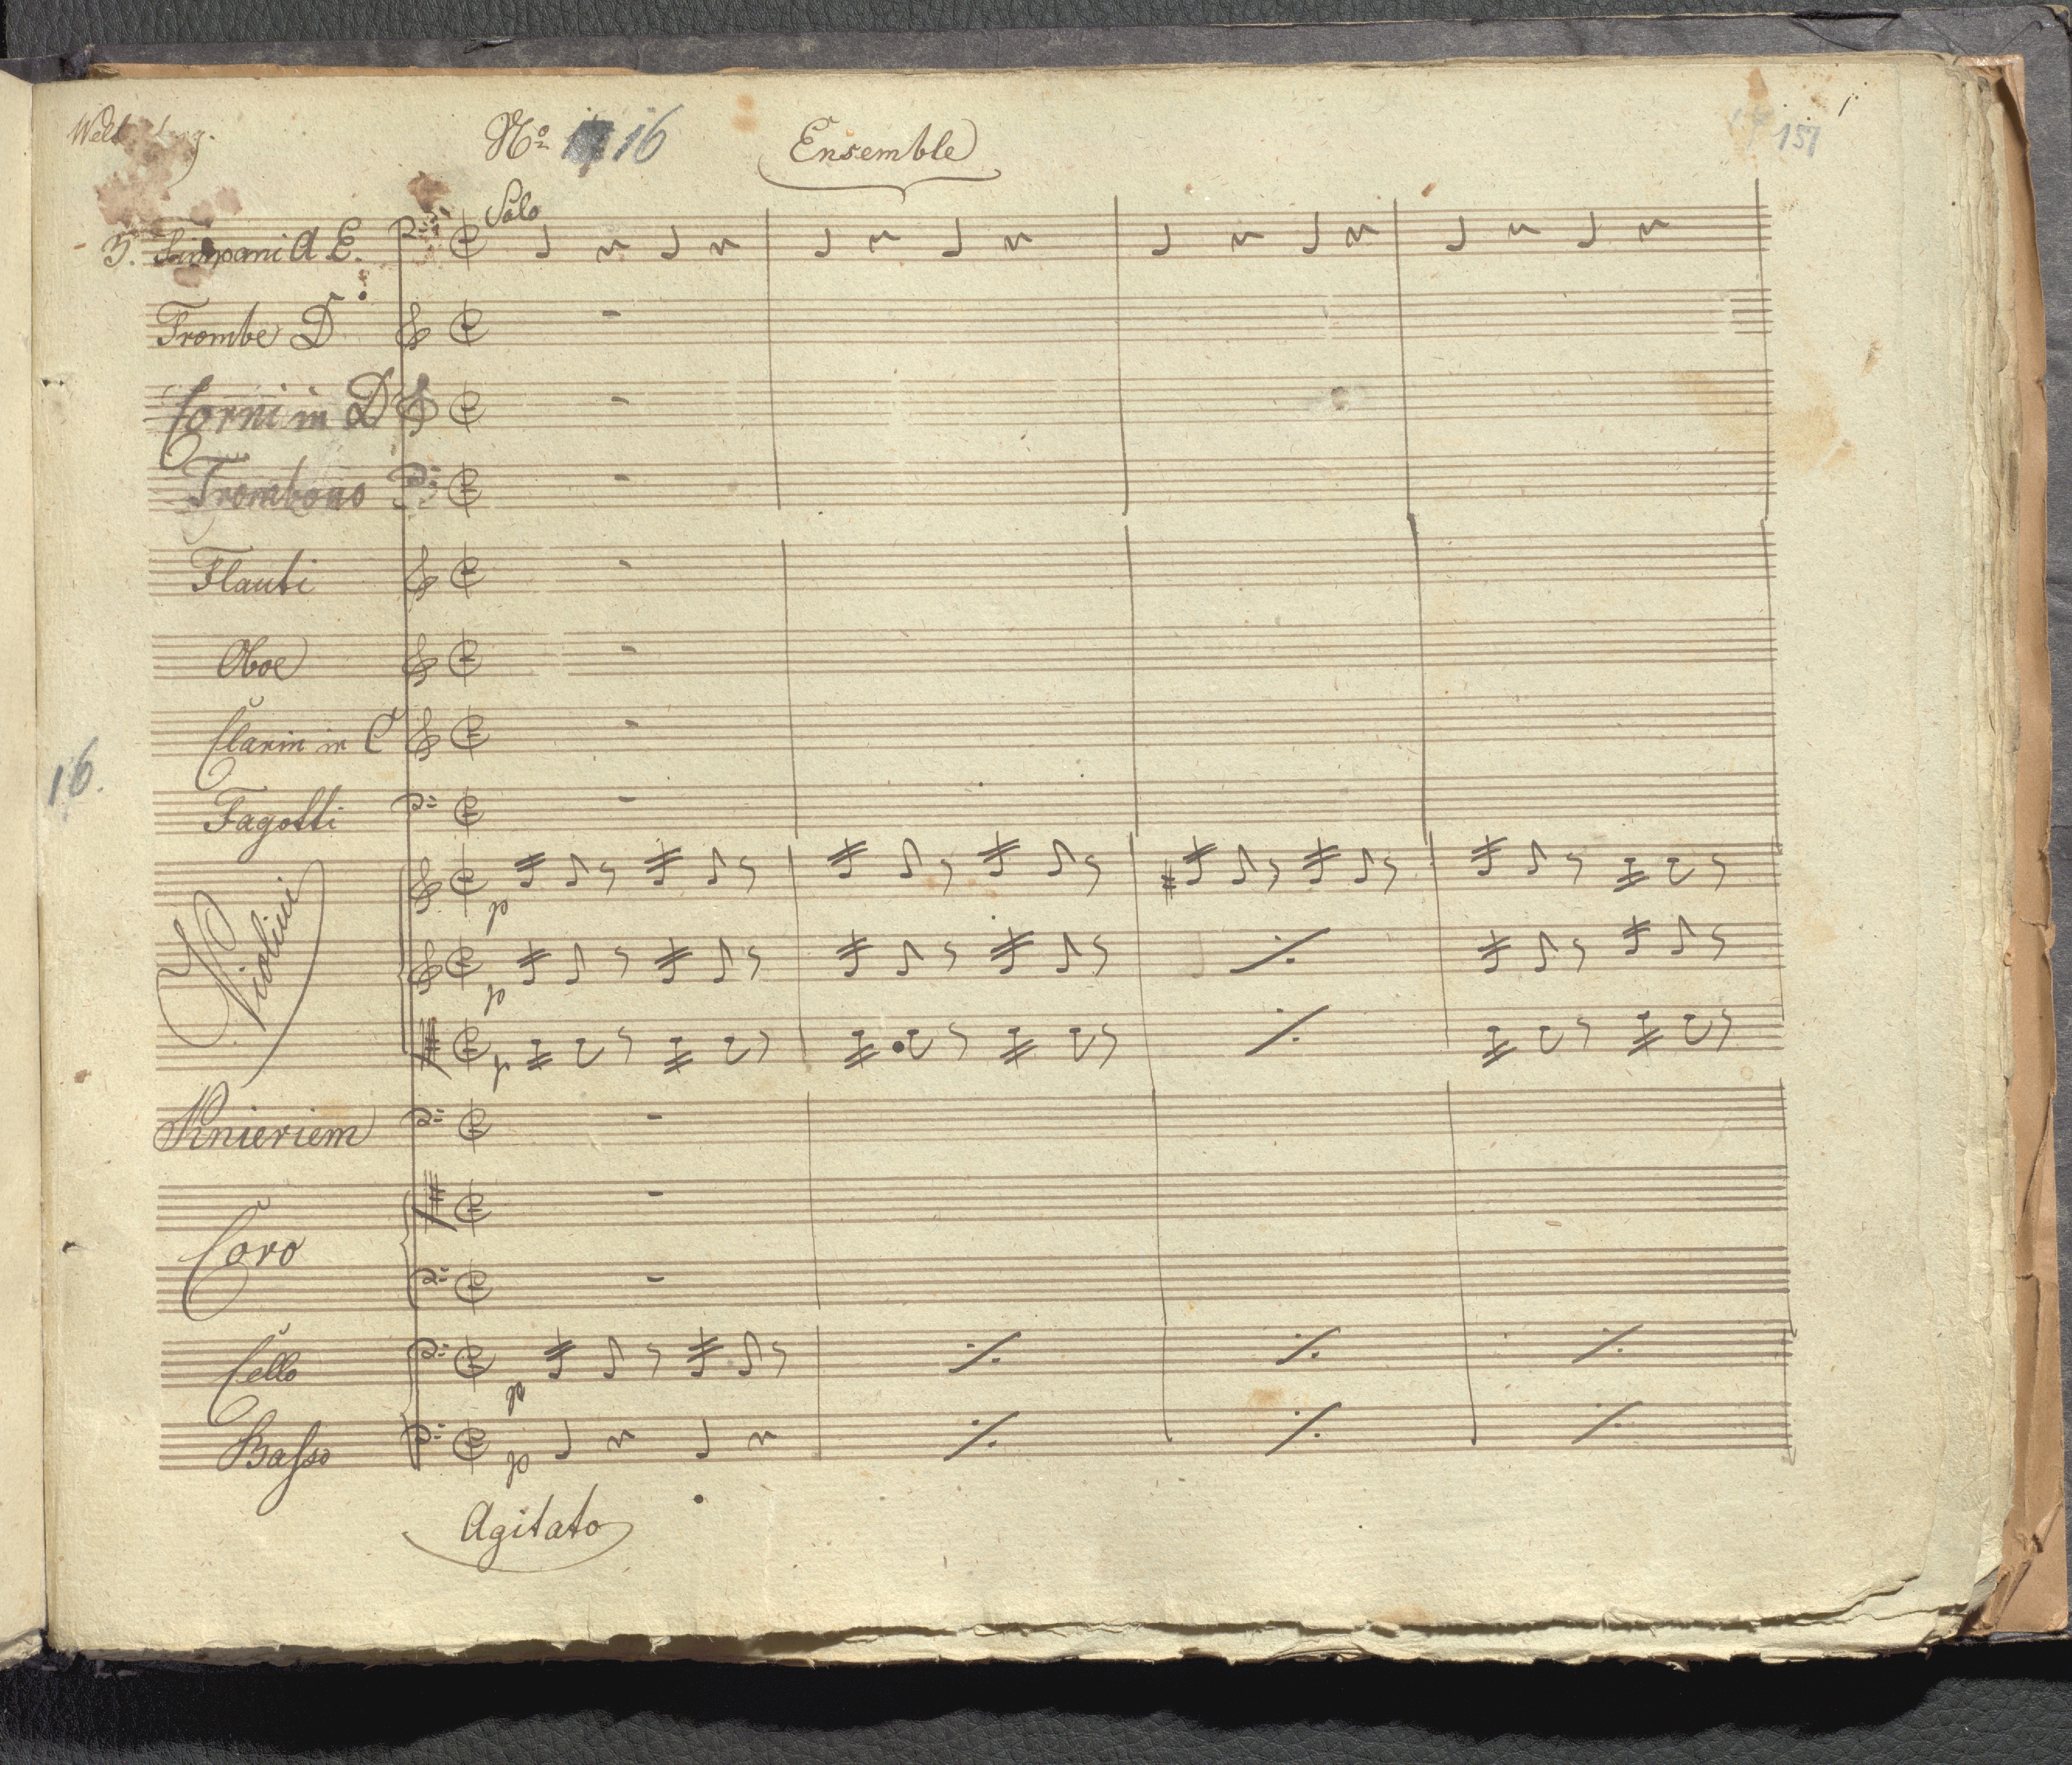 No 16 Ensemble 1. 151
Solo
3. Timpani A E.
Trombe D
Corni in D
Trombono
Flauti
Oboe
Clarin in C
16.
Fagotti
Violini
p
p
p
Knieriem
Coro
Cello
p
Basso
p
Agitato